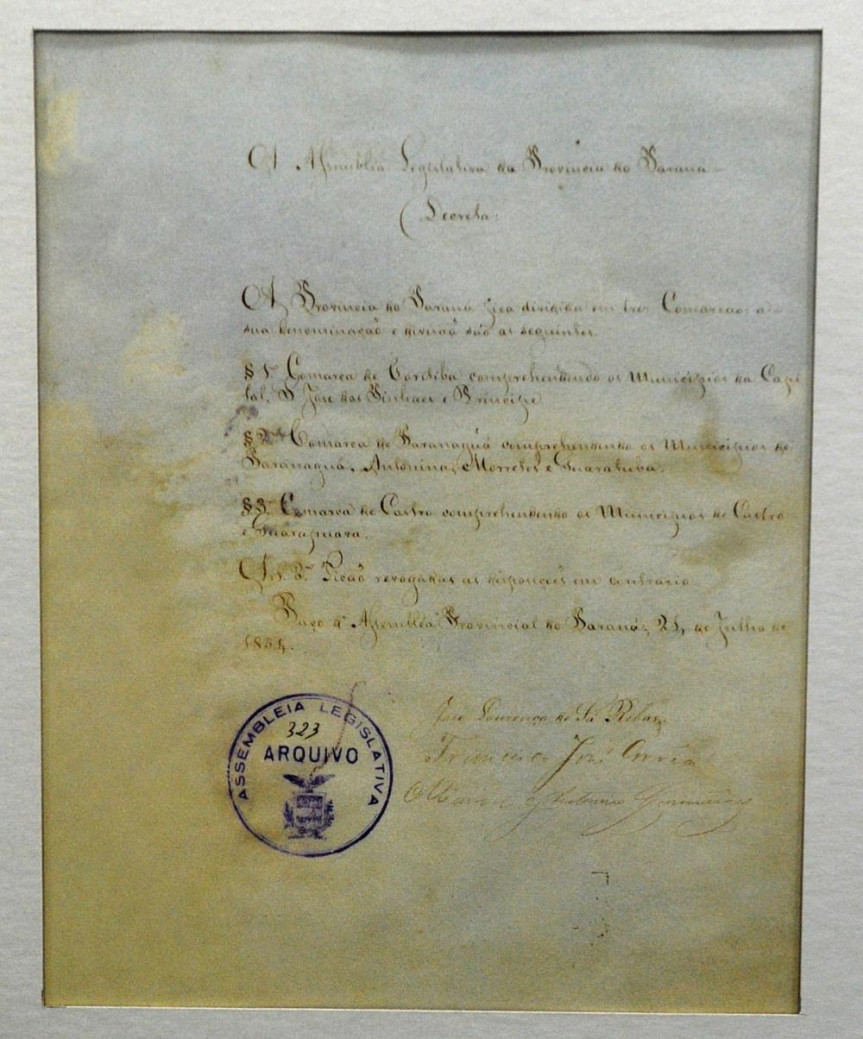 A Assemblea Legislativa da Provincia do Paraná
Decreta:
A Provincia do Paraná fica dividida em tres Comarcas; a
sua denominação e divisão são as seguintes.
§ 1º Comarca de Coritiba comprehendendo os Municipios da Capi
tal, S. José dos Pinhaes e Principe
§ 2º Comarca de Paranaguá comprehendendo os Municipios de
Paranaguá, Antonina, Morretes e Guaratuba.
§ 3º Comarca de Castro comprehendendo os Municipios de Castro
e Guarapuava.
Art. 3º Ficão revogadas as disposições em contrario
Paço d'Assemblea Provincial do Paraná, 24 de Julho de
1854.
José Lourenço de Sá Ribas,
Francisco José Corrêa
Manoel Antonio Guimarães
ASSEMBLEIA LEGISLATIVA
323
ARQUIVO